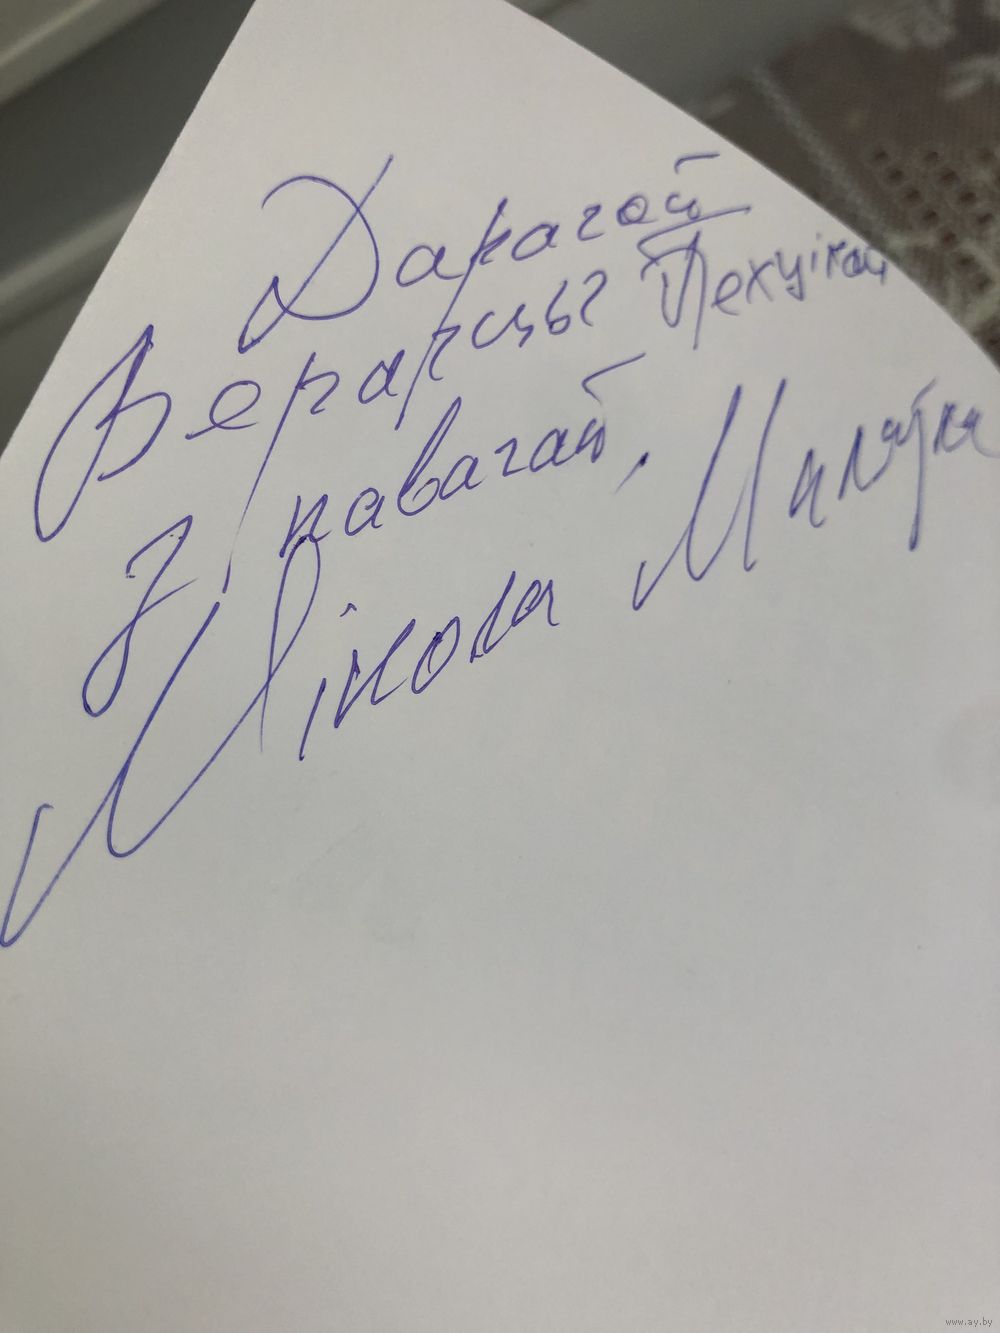 Дарагой
Верацы Пехцікай
З павагай,
Мікола Маляўка
www.ay.by